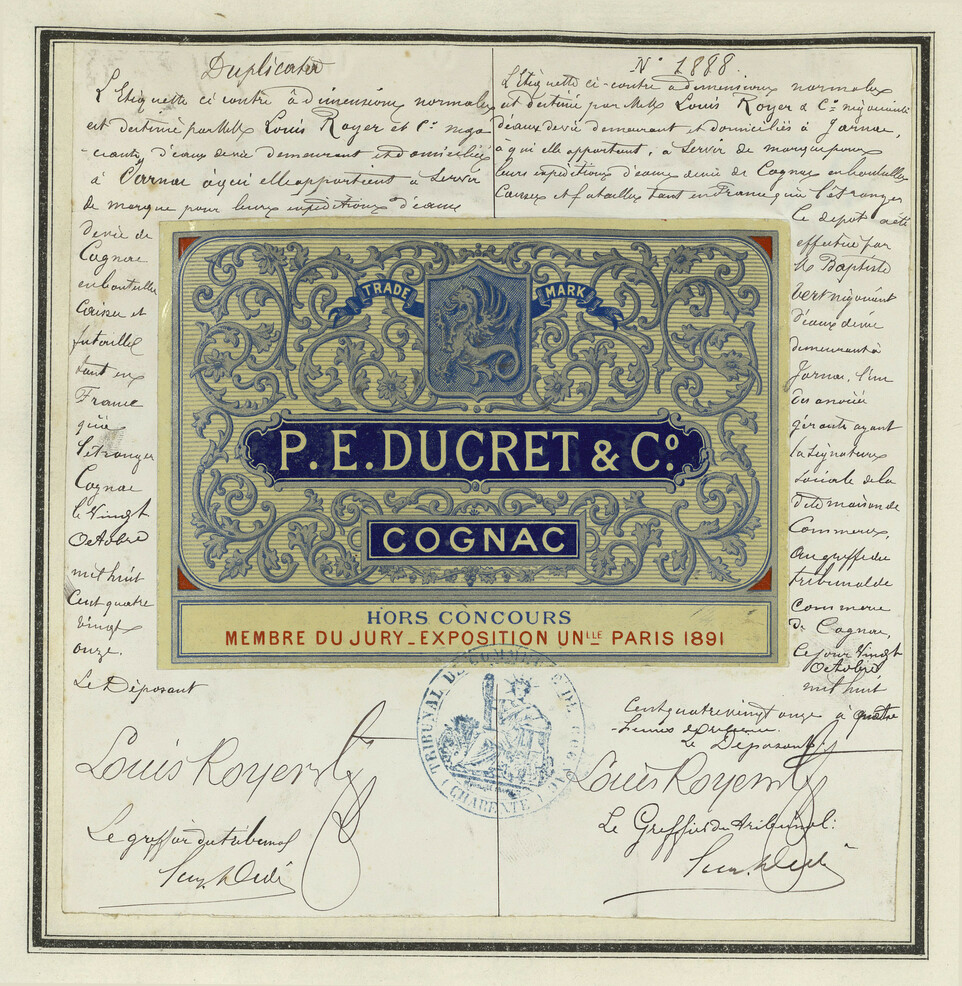 Duplicata
L'Etiquette ci contre à dimensions normales
est destinée par MM Louis Royer et Cie négo-
-ciants d'eaux devie demeurant et domiciliés
à Jarnac à qui elle appartient à servir
de marque pour leurs expéditions d'eaux
devie de
Cognac
en bouteilles
Caisses et
futailles
tant en
France
qu'à
l'étranger
Cognac
le Vingt
Octobre
mil huit
Cent quatre
vingt
onze.
Le Déposant
Louis Royer & Cie
Le greffier du tribunal
N° 1888.
L'Etiquette ci-contre à dimensions normales
est destinée par MM Louis Royer & Co négociants
d'eaux devie demeurant et domiciliés à Jarnac,
à qui elle appartient, à servir de marque pour
leurs expéditions d'eaux devie de Cognac en bouteilles
Caisses et futailles tant en France qu'à l'étranger
Ce dépôt a été
effectué par
M Baptiste
Vert négociant
d'eaux devie
demeurant à
Jarnac, l'un
des associés
gérants ayant
la signature
sociale de la
dite maison de
Commerce,
au greffe du
tribunal de
Commerce
de Cognac,
Ce jour Vingt
Octobre
mil huit
Cent quatre vingt onze à quatre
heures du
Le Déposant
Louis Royer & Cie
Le Greffier du tribunal.
TRADE MARK
P. E. DUCRET & Co.
COGNAC
HORS CONCOURS
MEMBRE DU JURY_EXPOSITION UNLLE PARIS 1891
TRIBUNAL DE COMMERCE DE COGNAC
CHARENTE